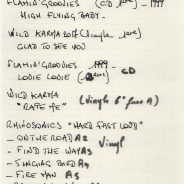 FLAMIN' GROOVIES (CD 1999
HIGH FLYING BABY -
WILD KARMA (Vinyle
GLAD TO SEE YOU
FLAMIN' GROOVIES 1999 - CD
LOUIE LOUIE
WILD KARMA (Vinyle 6" face A)
"RATE ME"
RHINOSONICS "HARD FAST LOUD"
- ON THE ROAD A2 Vinyl
- FIND THE WAY A3
- SINGING BARD A4
- FIRE MAN A5